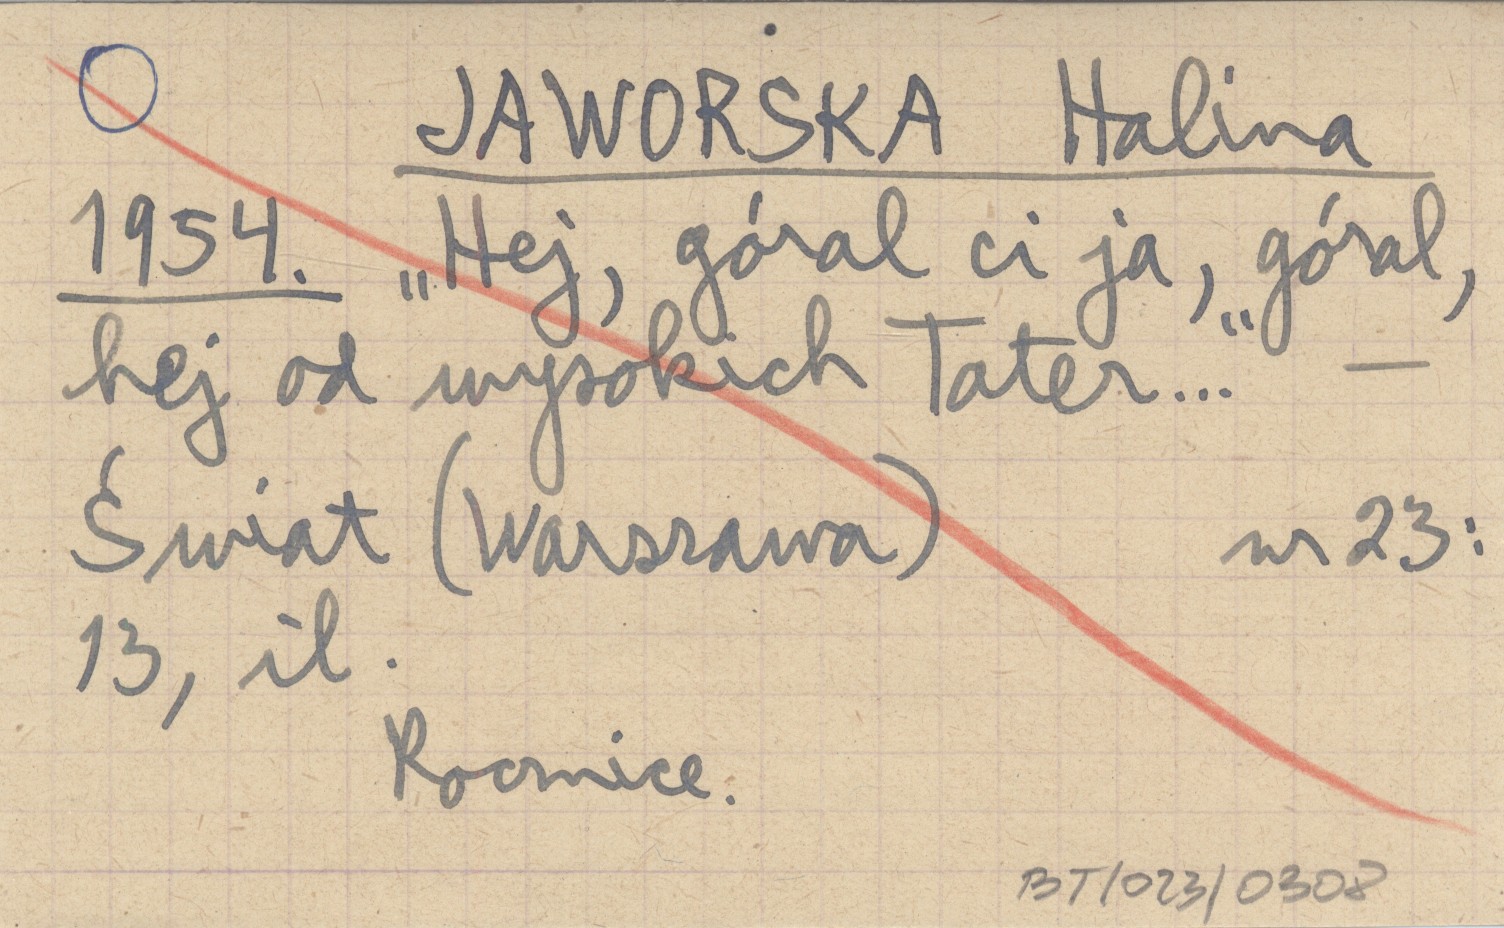 JAWORSKA Halina
1954. „Hej, góral ci ja, góral,
hej od wysokich Tater..." —
Świat (Warszawa) nr 23:
13, il.
Rocznice.
BT/023/0308